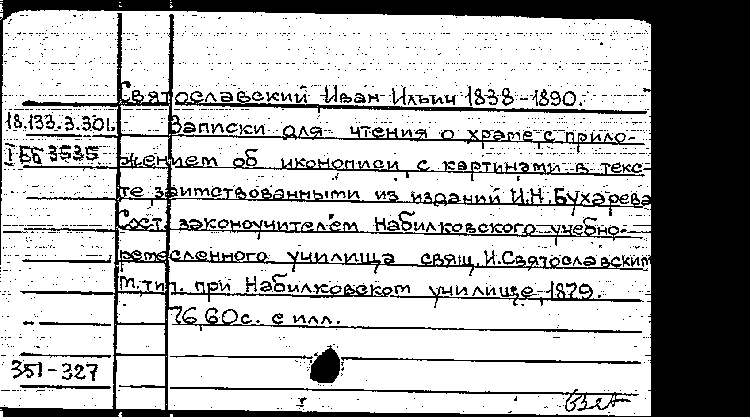 Святославский Иван Ильич 1838-1890.
18.133.3.301.
Записки для чтения о храме, с прило-
I Бб 3535
жением об иконописи, с картинами в текс-
те, заимствованными из изданий И.Н.Бухарева
Сост. законоучителем Набилковского учебно-
ремесленного училища свящ. И.Святославским
М, тип. при Набилковском училище, 1879.
76,60с. с илл.
351-327